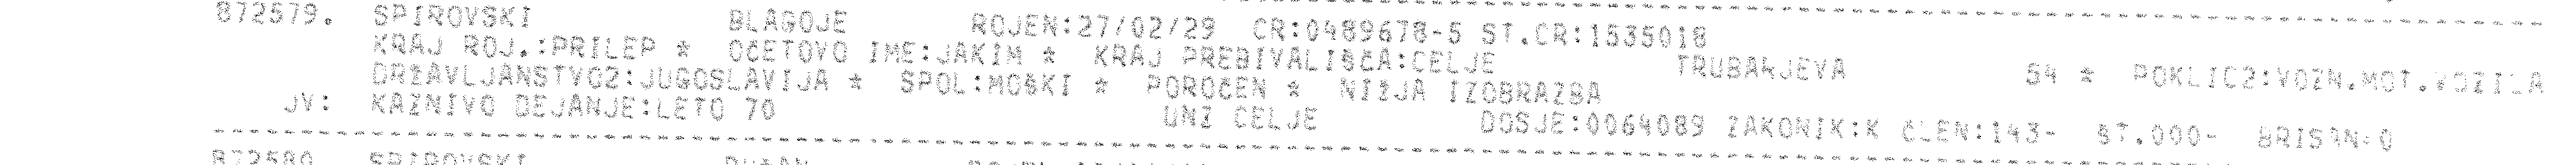 872579. SPIROVSKI BLAGOJE ROJEN:27/02/29 CR:0489678-5 ST.CR:1535018
KRAJ ROJ.:PRILEP * OČETOVO IME:JAKIM * KRAJ PREBIVALIŠČA:CELJE TRUBARJEVA 54 * POKLIC2:VOZN.MOT.VOZILA
DRŽAVLJANSTVO2:JUGOSLAVIJA * SPOL:MOŠKI * POROČEN * NIŽJA IZOBRAZBA
JV: KAZNIVO DEJANJE:LETO 70 UNZ CELJE DOSJE:0064089 ZAKONIK:K ČLEN:143- ST.000- BRISAN:0
872580 SPIROVSKI DUŠAN